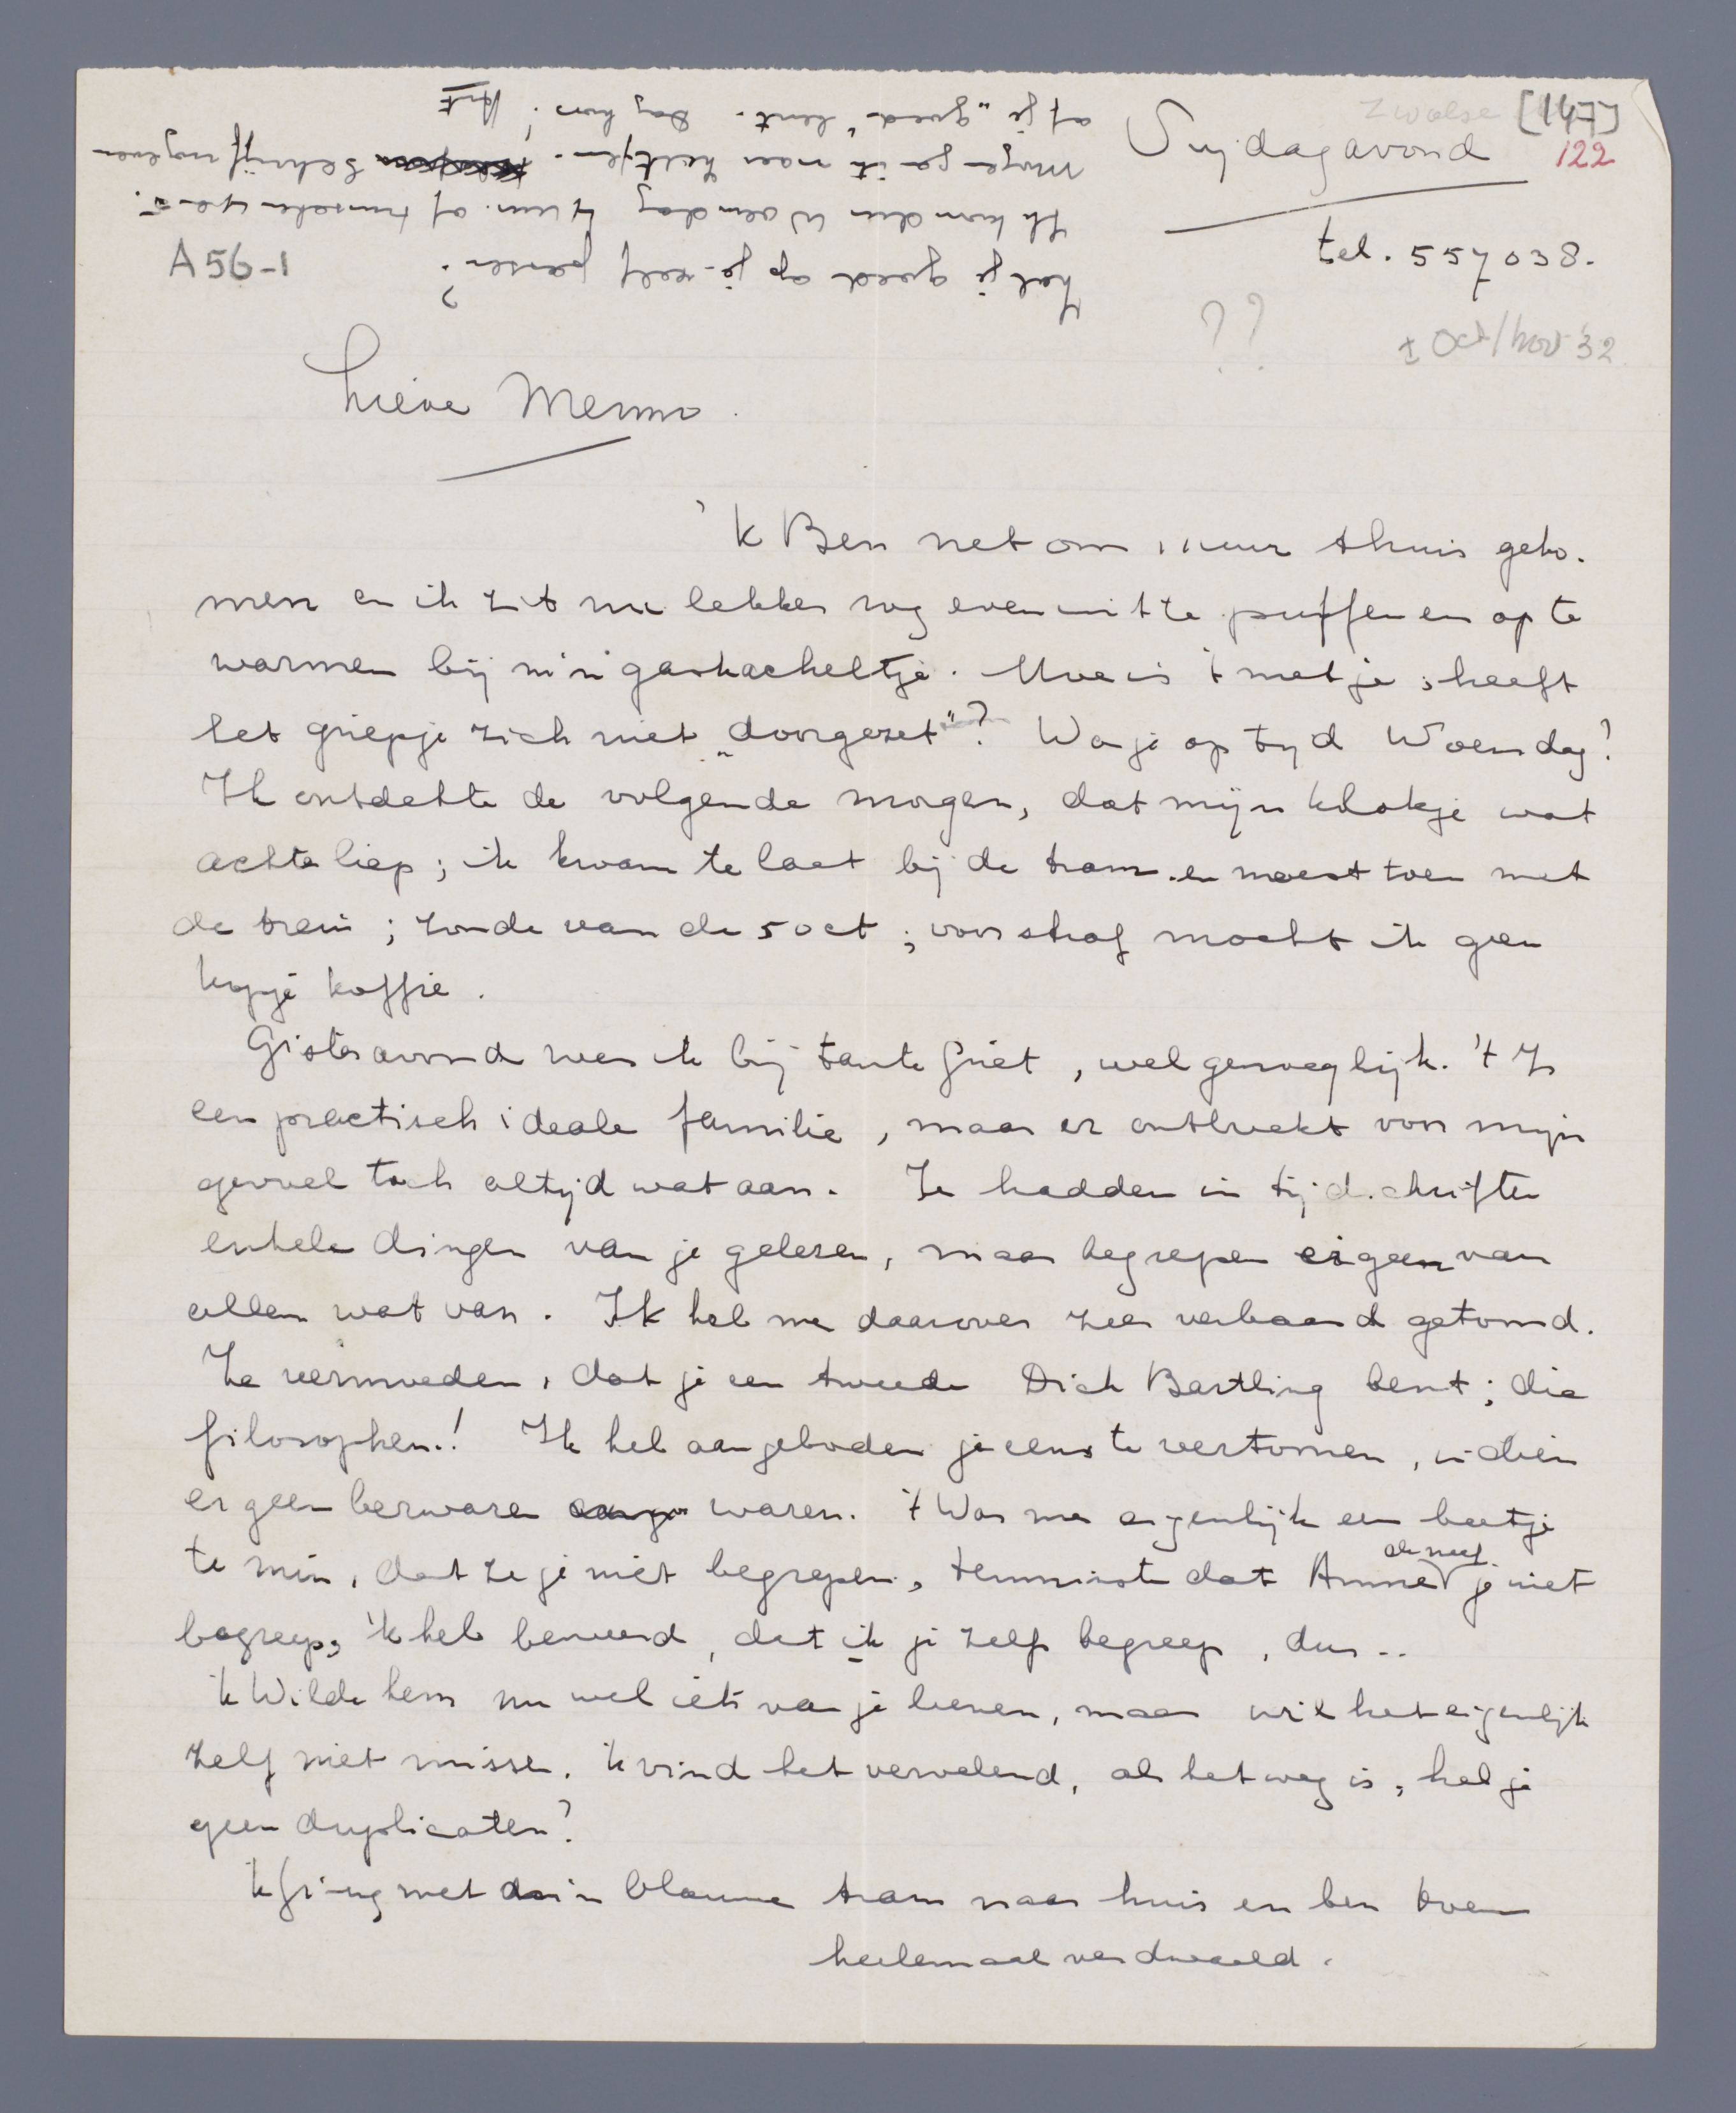 Zwolse [147]
Vrijdagavond 122
tel. 557038.
A 56-1
??
± Oct/nov '32
Lieve Menno.
'k Ben net om 11 uur thuis geko-
men en ik zit nu lekker nog even uit te puffen en op te
warmen bij m'n gaskacheltje. Hoe is 't met je, heeft
het griepje zich niet „doorgezet"? Was je op tijd Woensdag?
Ik ontdekte de volgende morgen, dat mijn klokje wat
achter liep; ik kwam te laat bij de tram en moest toen met
de trein; zonde van de 50 ct; voor straf mocht ik geen
kopje koffie.
Gisteravond was ik bij tante Griet, wel genoeglijk. 't Is
een practisch ideale familie, maar er ontbreekt voor mijn
gevoel toch altijd wat aan. Ze hadden in tijdschriften
enkele dingen van je gelezen, maar begrepen er geen van
allen wat van. Ik heb me daarover zeer verbaasd getoond.
Ze vermoeden, dat je een tweede Dick Bartling bent; die
filosophen.! Ik heb aangeboden je eens te vertonen, indien
er geen bezwaren waren. 't Was me eigenlijk een beetje
te min, dat ze je niet begrepen, tenminste dat Anne de neef je niet
begreep; 'k heb beweerd, dat ik je zelf begreep, dus ..
'k Wilde hem nu wel iets van je lenen, maar wil het eigenlijk
zelf niet missen. 'k vind het vervelend, als het weg is; heb je
geen duplicaten?
'k Ging met d'n blauwe tram naar huis en ben toen
helemaal verdwaald.
Zal je goed op je zelf passen?
Ik kom dus Woensdag 4 uur. of tusschen 4 en 5.
Morgen ga ik naar Zutfen. Schrijf nog even
of je „goed" bent. Dag hoor! Ant